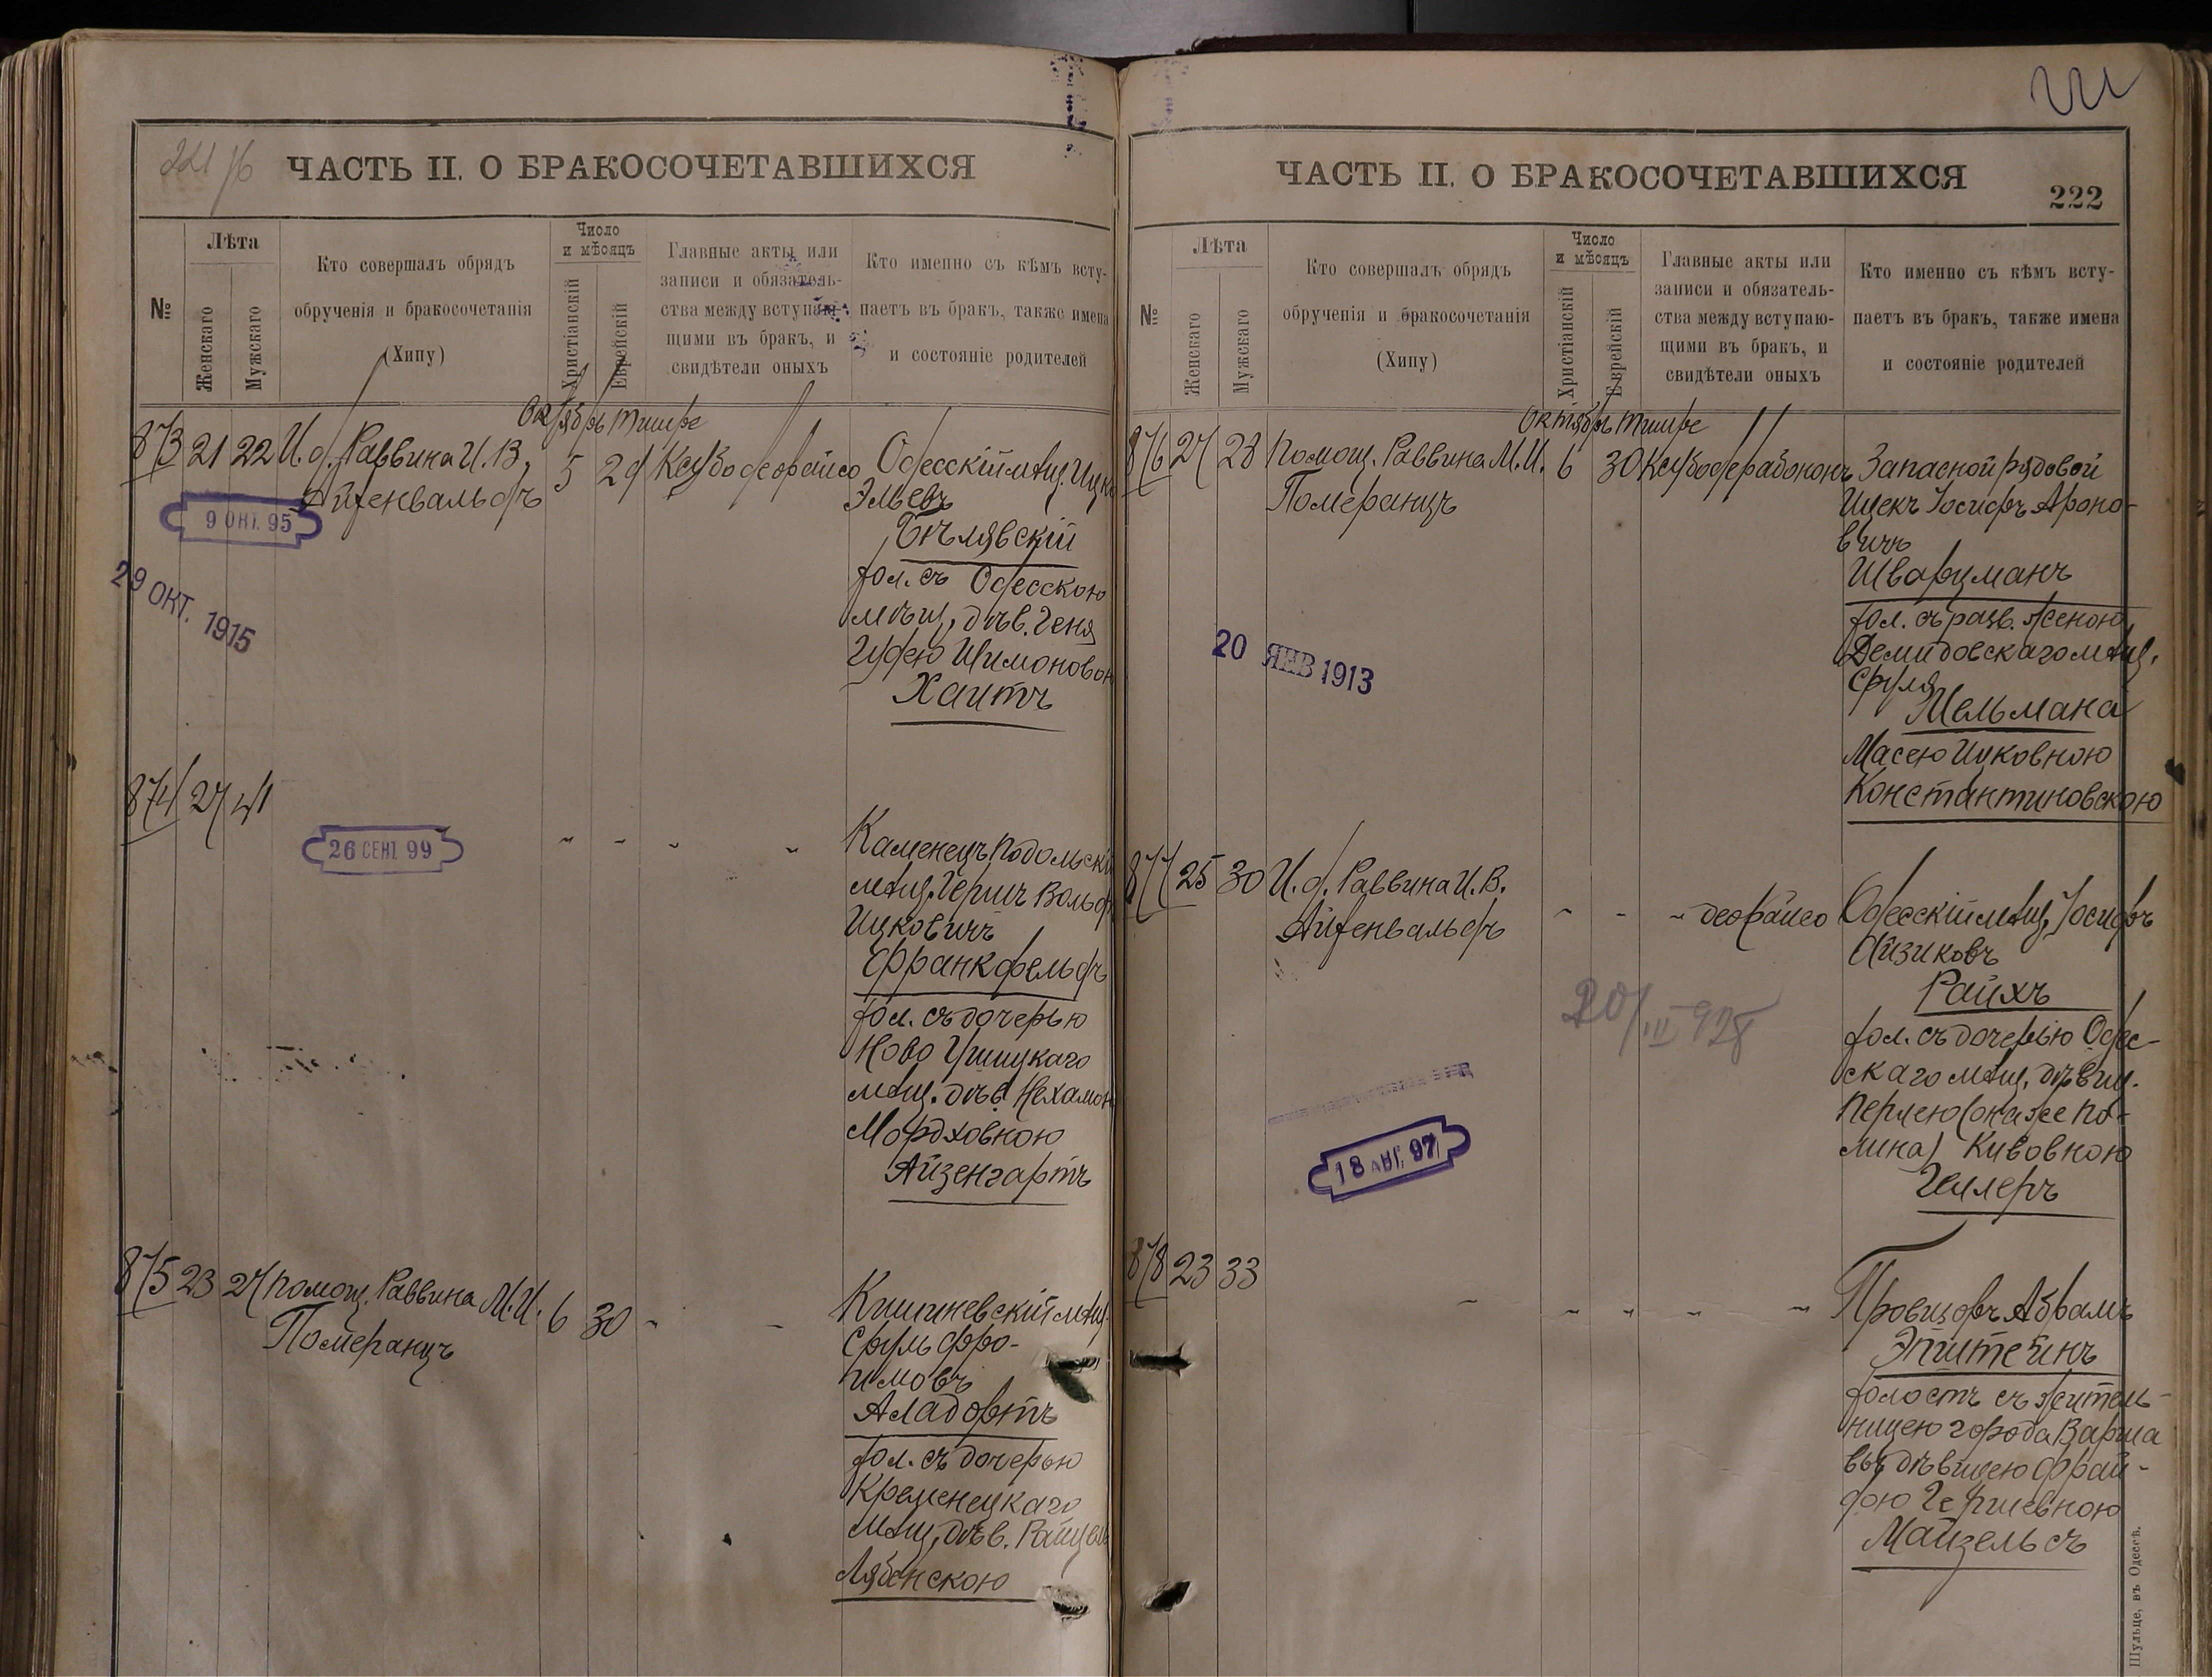 221 об
ЧАСТЬ II. О БРАКОСОЧЕТАВШИХСЯ
№
Лѣта
Женскаго
Мужскаго
Кто совершалъ обрядъ
обрученія и бракосочетанія
(Хипу)
Число
и мѣсяцъ
Христіанскій
Еврейскій
Главные акты или
записи и обязатель-
ства между вступаю-
щими въ бракъ, и
свидѣтели оныхъ
Кто именно съ кѣмъ всту-
паетъ въ бракъ, также имена
и состояніе родителей
Октябрь Тишре
873 21 22 И. д. Раввина И. В.
Айзенвальдъ
5 29 Ксубо деорайсо
Одесскій мѣщ. Ицко
Эльевъ
Бѣлявскій
хол. съ Одесскою
мѣщ. дѣв. Геня
Гудею Шимоновою
Хаитъ
9 ОКТ. 95
29 ОКТ. 1915
874 27 41
26 СЕНТ. 99
" " " "
Каменецъ Подольскій
мѣщ. Гершъ Вольфъ
Ицковичъ
Франкфельдъ
хол. съ дочерью
Ново Ушицкаго
мѣщ. дѣв. Нехамою
Мордховною
Айзенгартъ
875 23 27 Помощ. Раввина М. И.
Померанцъ
6 30 " "
Кишиневскій мѣщ.
Сруль Фро-
имовъ
Аладортъ
хол. съ дочерью
Кременецкаго
мѣщ. дѣв.
Лябенскою
ЧАСТЬ II. О БРАКОСОЧЕТАВШИХСЯ
222
№
Лѣта
Женскаго
Мужскаго
Кто совершалъ обрядъ
обрученія и бракосочетанія
(Хипу)
Число
и мѣсяцъ
Христіанскій
Еврейскій
Главные акты или
записи и обязатель-
ства между вступаю-
щими въ бракъ, и
свидѣтели оныхъ
Кто именно съ кѣмъ всту-
паетъ въ бракъ, также имена
и состояніе родителей
Октябрь Тишре
876 27 28 Помощ. Раввина М. И.
Померанцъ
6 30 Ксубо дерабононъ
Запасной рядовой
Ицекъ Іосифъ Ароно-
вичъ
Шварцманъ
хол. съ разв. женою
Демидовскаго мѣщ.
Сруля
Мельмана
Масею Ицковною
Константиновскою
20 ЯНВ 1913
877 25 30 И. д. Раввина И. В.
Айзенвальдъ
" " " деорайсо
Одесскій мѣщ. Іосифъ
Айзиковъ
Райхъ
хол. съ дочерью Одес-
скаго мѣщ. дѣвиц.
Перлею (она же По-
лина) Кивовною
Геллеръ
18 АВГ. 97
878 23 33
" " " " "
Провизоръ Абрамъ
Эпштейнъ
холостъ съ житель-
ницею города Варша
вы дѣвицею Фрай-
дою Гершевною
Майзельсъ
Шульце, въ Одессѣ.